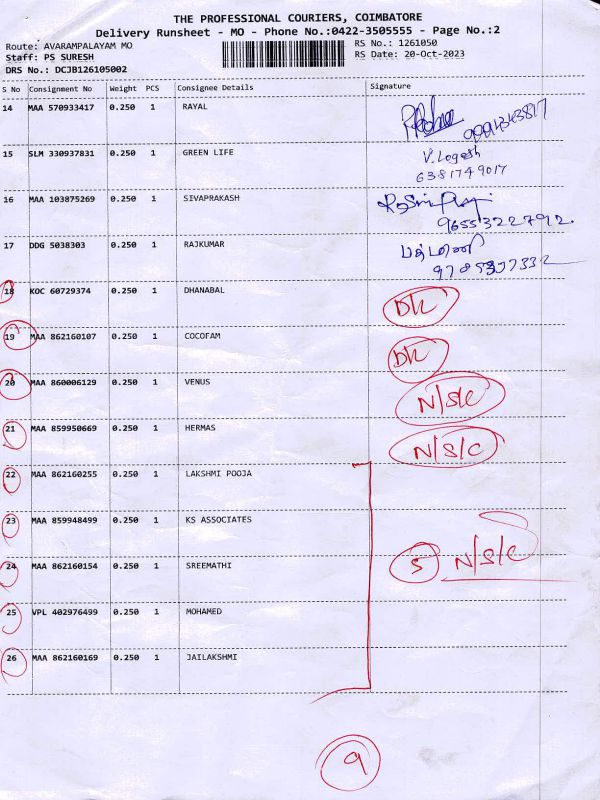 THE PROFESSIONAL COURIERS, COIMBATORE
Delivery Runsheet - MO - Phone No.:0422-3505555 - Page No.:2
Route: AVARAMPALAYAM MO RS No.: 1261050
Staff: PS SURESH RS Date: 20-Oct-2023
DRS No.: DCJB126105002
S No Consignment No Weight PCS Consignee Details Signature
14 MAA 570933417 0.250 1 RAYAL
15 SLM 330937831 0.250 1 GREEN LIFE V. Logesh
6381749017
16 MAA 103875269 0.250 1 SIVAPRAKASH
9655322792.
17 DDG 5038303 0.250 1 RAJKUMAR
18 KOC 60729374 0.250 1 DHANABAL DK
19 MAA 862160107 0.250 1 COCOFAM DK
20 MAA 860006129 0.250 1 VENUS N/S/C
21 MAA 859950669 0.250 1 HERMAS N/S/C
22 MAA 862160255 0.250 1 LAKSHMI POOJA
23 MAA 859948499 0.250 1 KS ASSOCIATES
24 MAA 862160154 0.250 1 SREEMATHI 5 N/S/C
25 VPL 402976499 0.250 1 MOHAMED
26 MAA 862160169 0.250 1 JAILAKSHMI
9